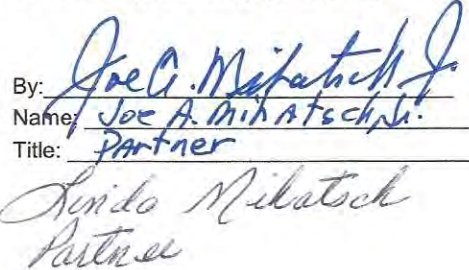 By: Joe A. Mihatsch Jr.
Name: Joe A. Mihatsch, Jr.
Title: Partner
Linda Mihatsch
Partner